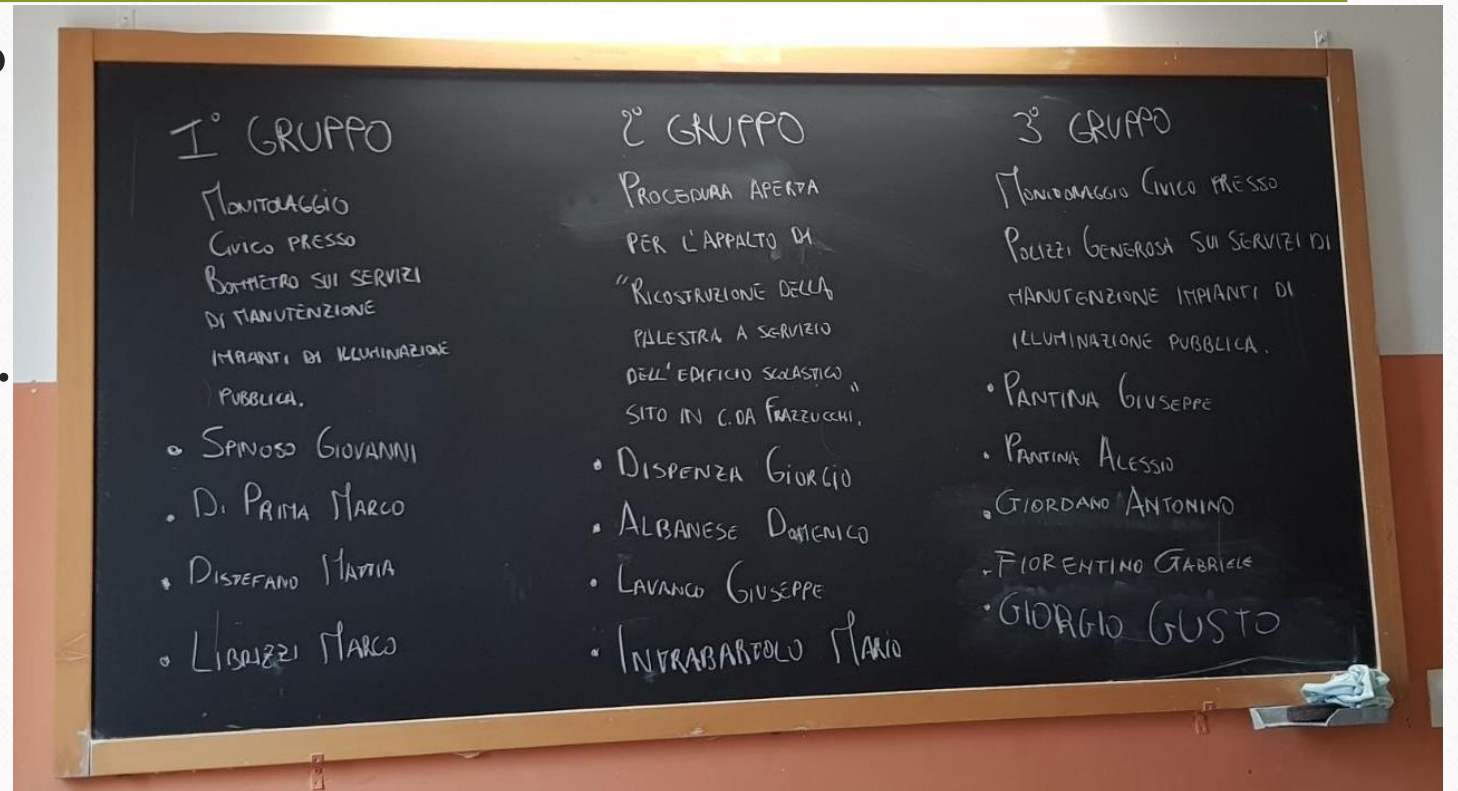 1° GRUPPO
MONITORAGGIO
CIVICO PRESSO
BOMPIETRO SUI SERVIZI
DI MANUTENZIONE
IMPIANTI DI ILLUMINAZIONE
PUBBLICA.
• SPINOSO GIOVANNI
• DI PRIMA MARCO
• DISTEFANO MATTIA
• LIBRIZZI MARCO
2° GRUPPO
PROCEDURA APERTA
PER L'APPALTO DI
"RICOSTRUZIONE DELLA
PALESTRA A SERVIZIO
DELL'EDIFICIO SCOLASTICO"
SITO IN C.DA FRAZZUCCHI.
• DISPENZA GIORGIO
• ALBANESE DOMENICO
• LAVANCO GIUSEPPE
• INTRABARTOLO MARIO
3° GRUPPO
MONITORAGGIO CIVICO PRESSO
POLIZZI GENEROSA SUI SERVIZI DI
MANUTENZIONE IMPIANTI DI
ILLUMINAZIONE PUBBLICA.
• PANTINA GIUSEPPE
• PANTINA ALESSIO
• GIORDANO ANTONINO
• FIORENTINO GABRIELE
• GIORGIO GUSTO